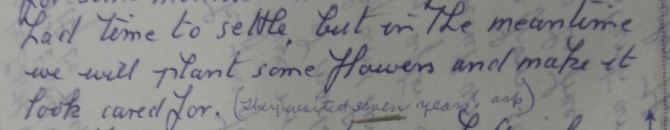 for some
had time to settle, but in the meantime
we will plant some flowers and make it
look cared for. (They waited seven years, ask)